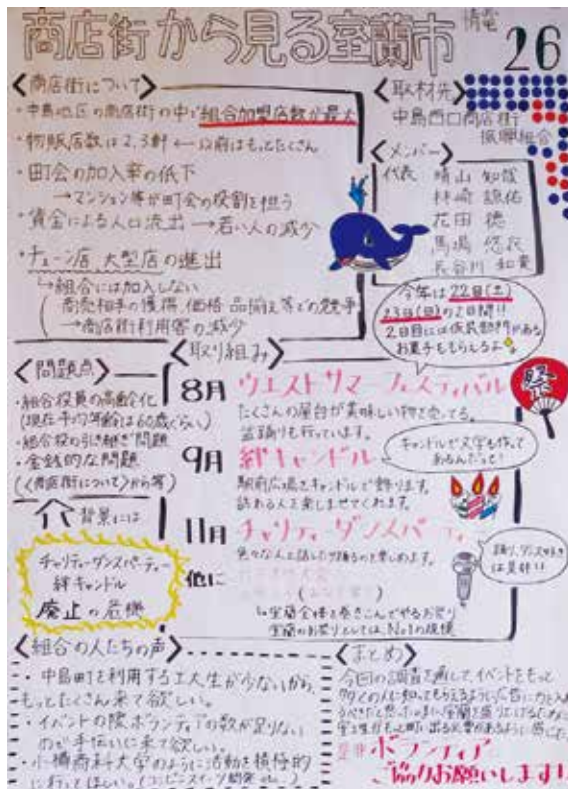 商店街から見る室蘭市
情電
26
<商店街について>
・中島地区の商店街の中で組合加盟店数が最大
・物販店数は2,3軒 ← 以前はもっとたくさん
・町会の加入率の低下
→マンション等が町会の役割を担う
・賃金による人口流出 → 若い人の減少
・チェーン店、大型店の進出
↳組合には加入しない
商売相手の獲得、価格、品揃え等での競争
→商店街利用客の減少
<取材先>
中島西口商店街
振興組合
<メンバー>
代表 晴山
柿崎 諒佑
花田 徳
馬場 悠民
長谷川 和貴
今年は22日(土)
23日(日)の2日間!!
2日目には仮装部門がある
お菓子ももらえるよ
<問題点>
・組合役員の高齢化
(現在平均年齢は60歳ぐらい)
・組合役の引き継ぎ問題
・金銭的な問題
(<商店街について>から等)
背景には
チャリティーダンスパーティー
絆キャンドル
廃止の危機
<取り組み>
8月 ウエストサマーフェスティバル
たくさんの屋台が美味しい物を売ってる。
盆踊りも行っています。
祭
9月 絆キャンドル
キャンドルで文字も作って
あるんだって!
駅前広場をキャンドルで飾ります。
訪れる人を楽しませてくれます。
11月 チャリティーダンスパーティ
色々な人と話したり踊るのを楽しめます。
踊り、ダンス好き
は是非!!
他に
↳室蘭全体を巻きこんでやるお祭り
室蘭のお祭りとしては、No1の規模
<組合の人たちの声>
・中島町を利用する工大生が少ないから、
もっとたくさん来て欲しい。
・イベントの際ボランティアの数が足りない
ので手伝いに来て欲しい。
・小樽商科大学のように活動を積極的
に行ってほしい。(コンビニスイーツ開発 etc…)
<まとめ>
今回の調査を通して、イベントをもっと
多くの人に知ってもらえるように広告に力を入れ
るべきだと思った。また、室蘭を盛り上げるために
室工生がもっと町に出る必要があるように感じた。
是非ボランティア
ご協力お願いします!